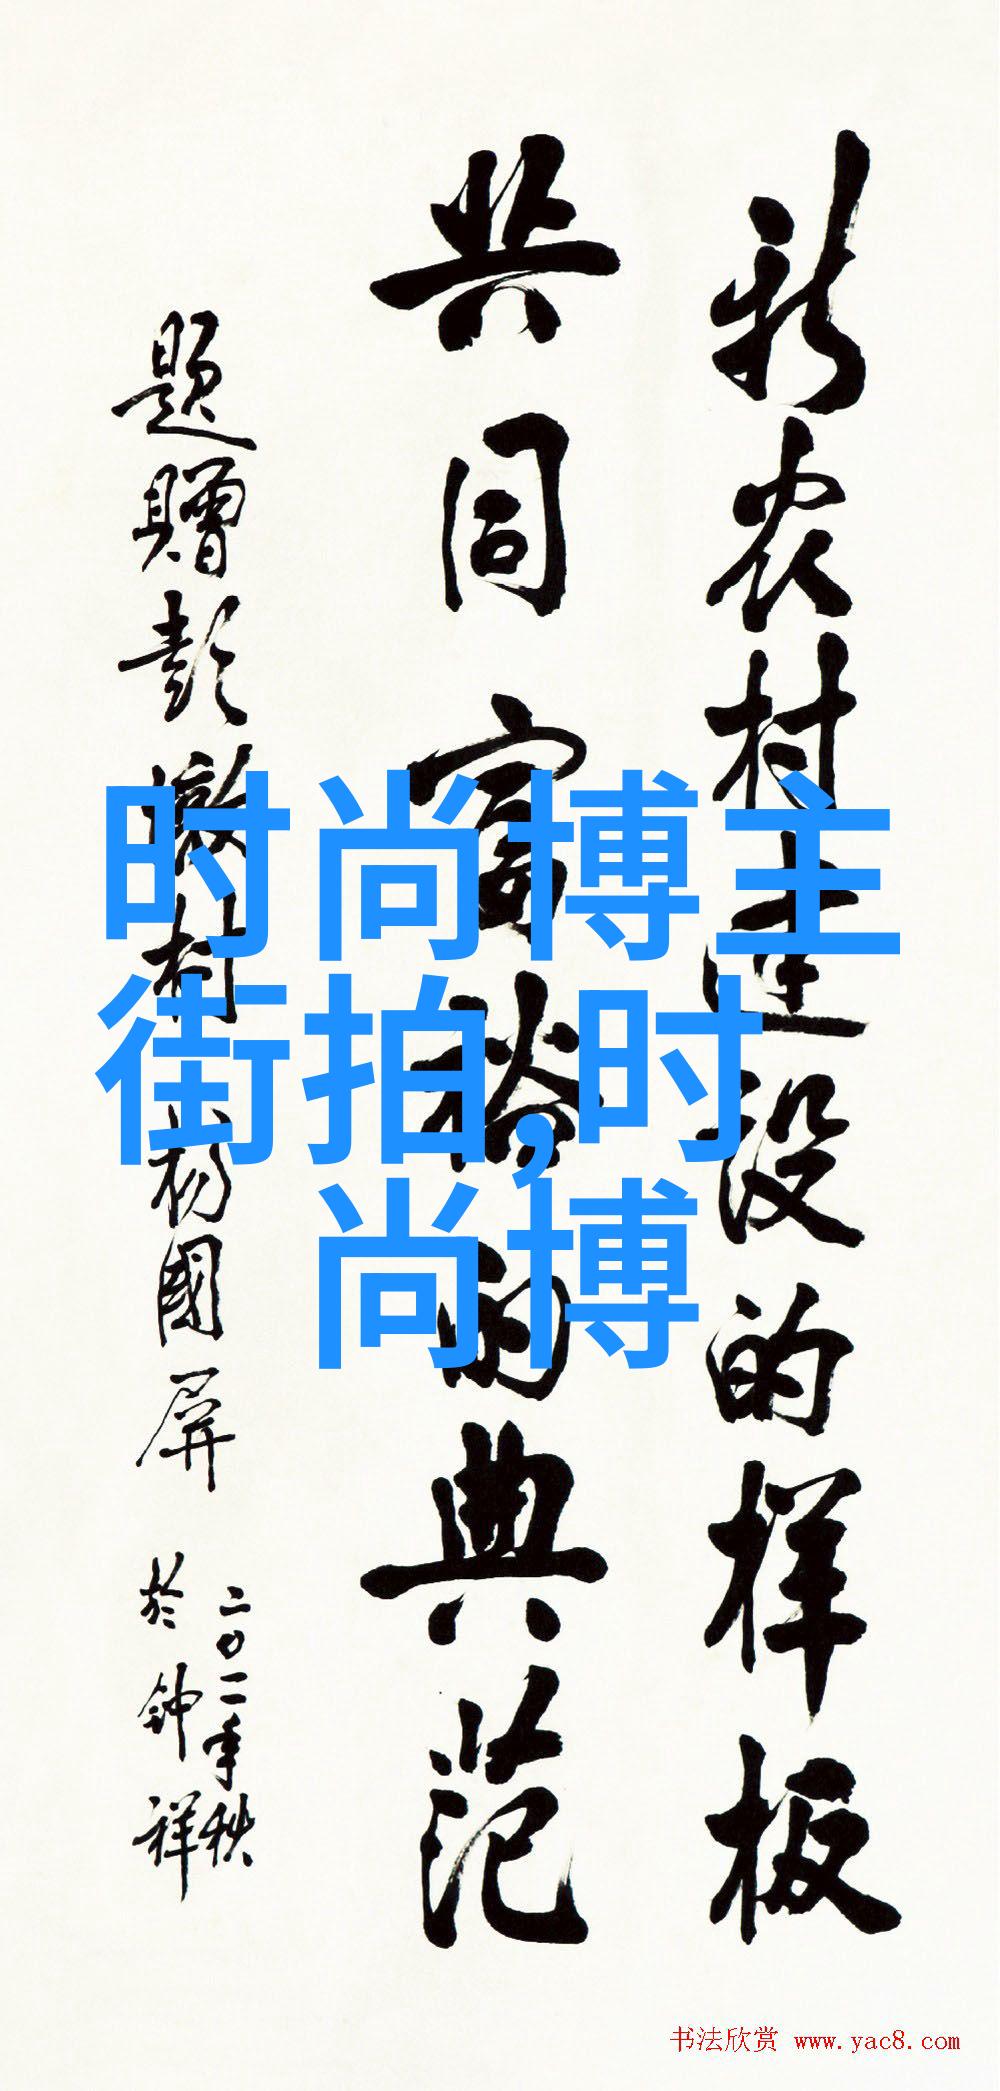 新农村建设的样板
共同富裕的典范
题赠彭墩村 杨国屏
二〇一一年秋
於钟祥
时尚博主
街拍,时
尚博
书法欣赏 www.yac8.com